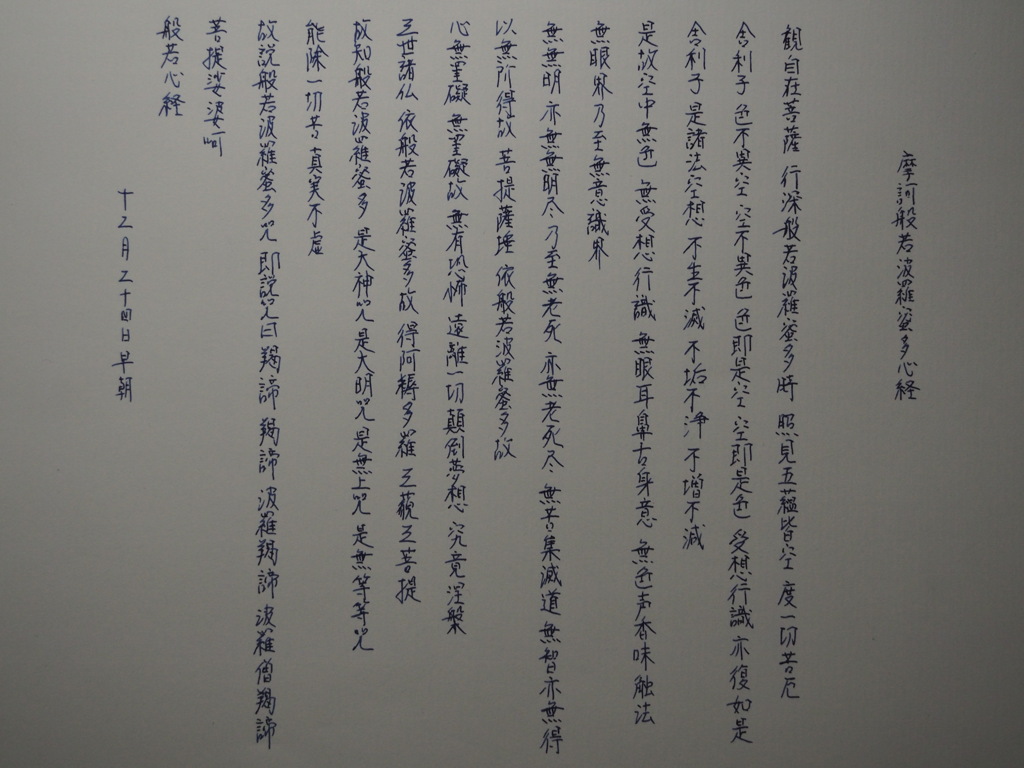 摩訶般若波羅蜜多心経
観自在菩薩 行深般若波羅蜜多時 照見五蘊皆空 度一切苦厄
舎利子 色不異空 空不異色 色即是空 空即是色 受想行識 亦復如是
舎利子 是諸法空想 不生不滅 不垢不浄 不増不減
是故空中無色 無受想行識 無眼耳鼻舌身意 無色声香味触法
無眼界乃至無意識界
無無明 亦無無明尽 乃至無老死 亦無老死尽 無苦集滅道 無智亦無得
以無所得故 菩提薩埵 依般若波羅蜜多故
心無罣礙 無罣礙故 無有恐怖 遠離一切顛倒夢想 究竟涅槃
三世諸仏 依般若波羅蜜多故 得阿耨多羅 三藐三菩提
故知般若波羅蜜多 是大神咒 是大明咒 是無上咒 是無等等咒
能除一切苦 真実不虚
故説般若波羅蜜多咒 即説咒曰 羯諦 羯諦 波羅羯諦 波羅僧羯諦
菩提娑婆呵
般若心経
十二月二十四日早朝